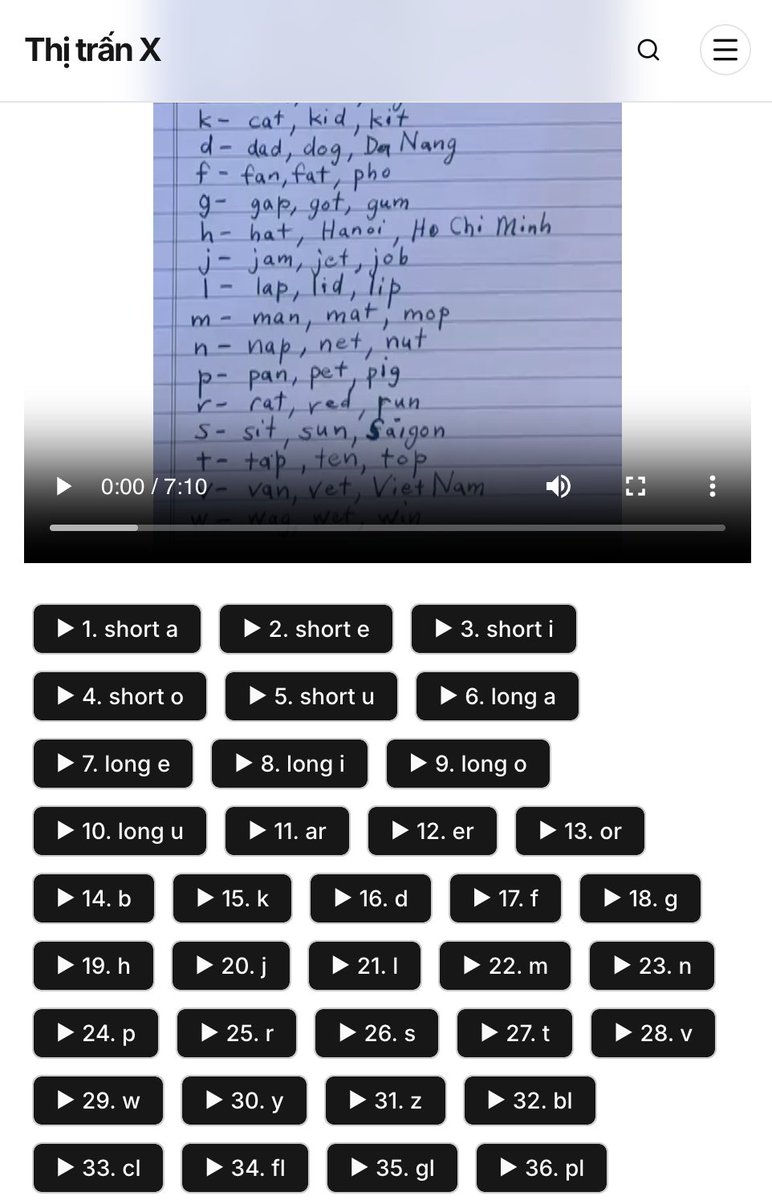 Thị trấn X
k- cat, kid, kit
d- dad, dog, Da Nang
f- fan, fat, pho
g- gap, got, gum
h- hat, Hanoi, Ho Chi Minh
j- jam, jet, job
l- lap, lid, lip
m- man, mat, mop
n- nap, net, nut
p- pan, pet, pig
r- rat, red, run
s- sit, sun, Saigon
t- tap, ten, top
v- van, vet, Viet Nam
0:00 / 7:10
w- wag, wet, win
1. short a 2. short e 3. short i
4. short o 5. short u 6. long a
7. long e 8. long i 9. long o
10. long u 11. ar 12. er 13. or
14. b 15. k 16. d 17. f 18. g
19. h 20. j 21. l 22. m 23. n
24. p 25. r 26. s 27. t 28. v
29. w 30. y 31. z 32. bl
33. cl 34. fl 35. gl 36. pl